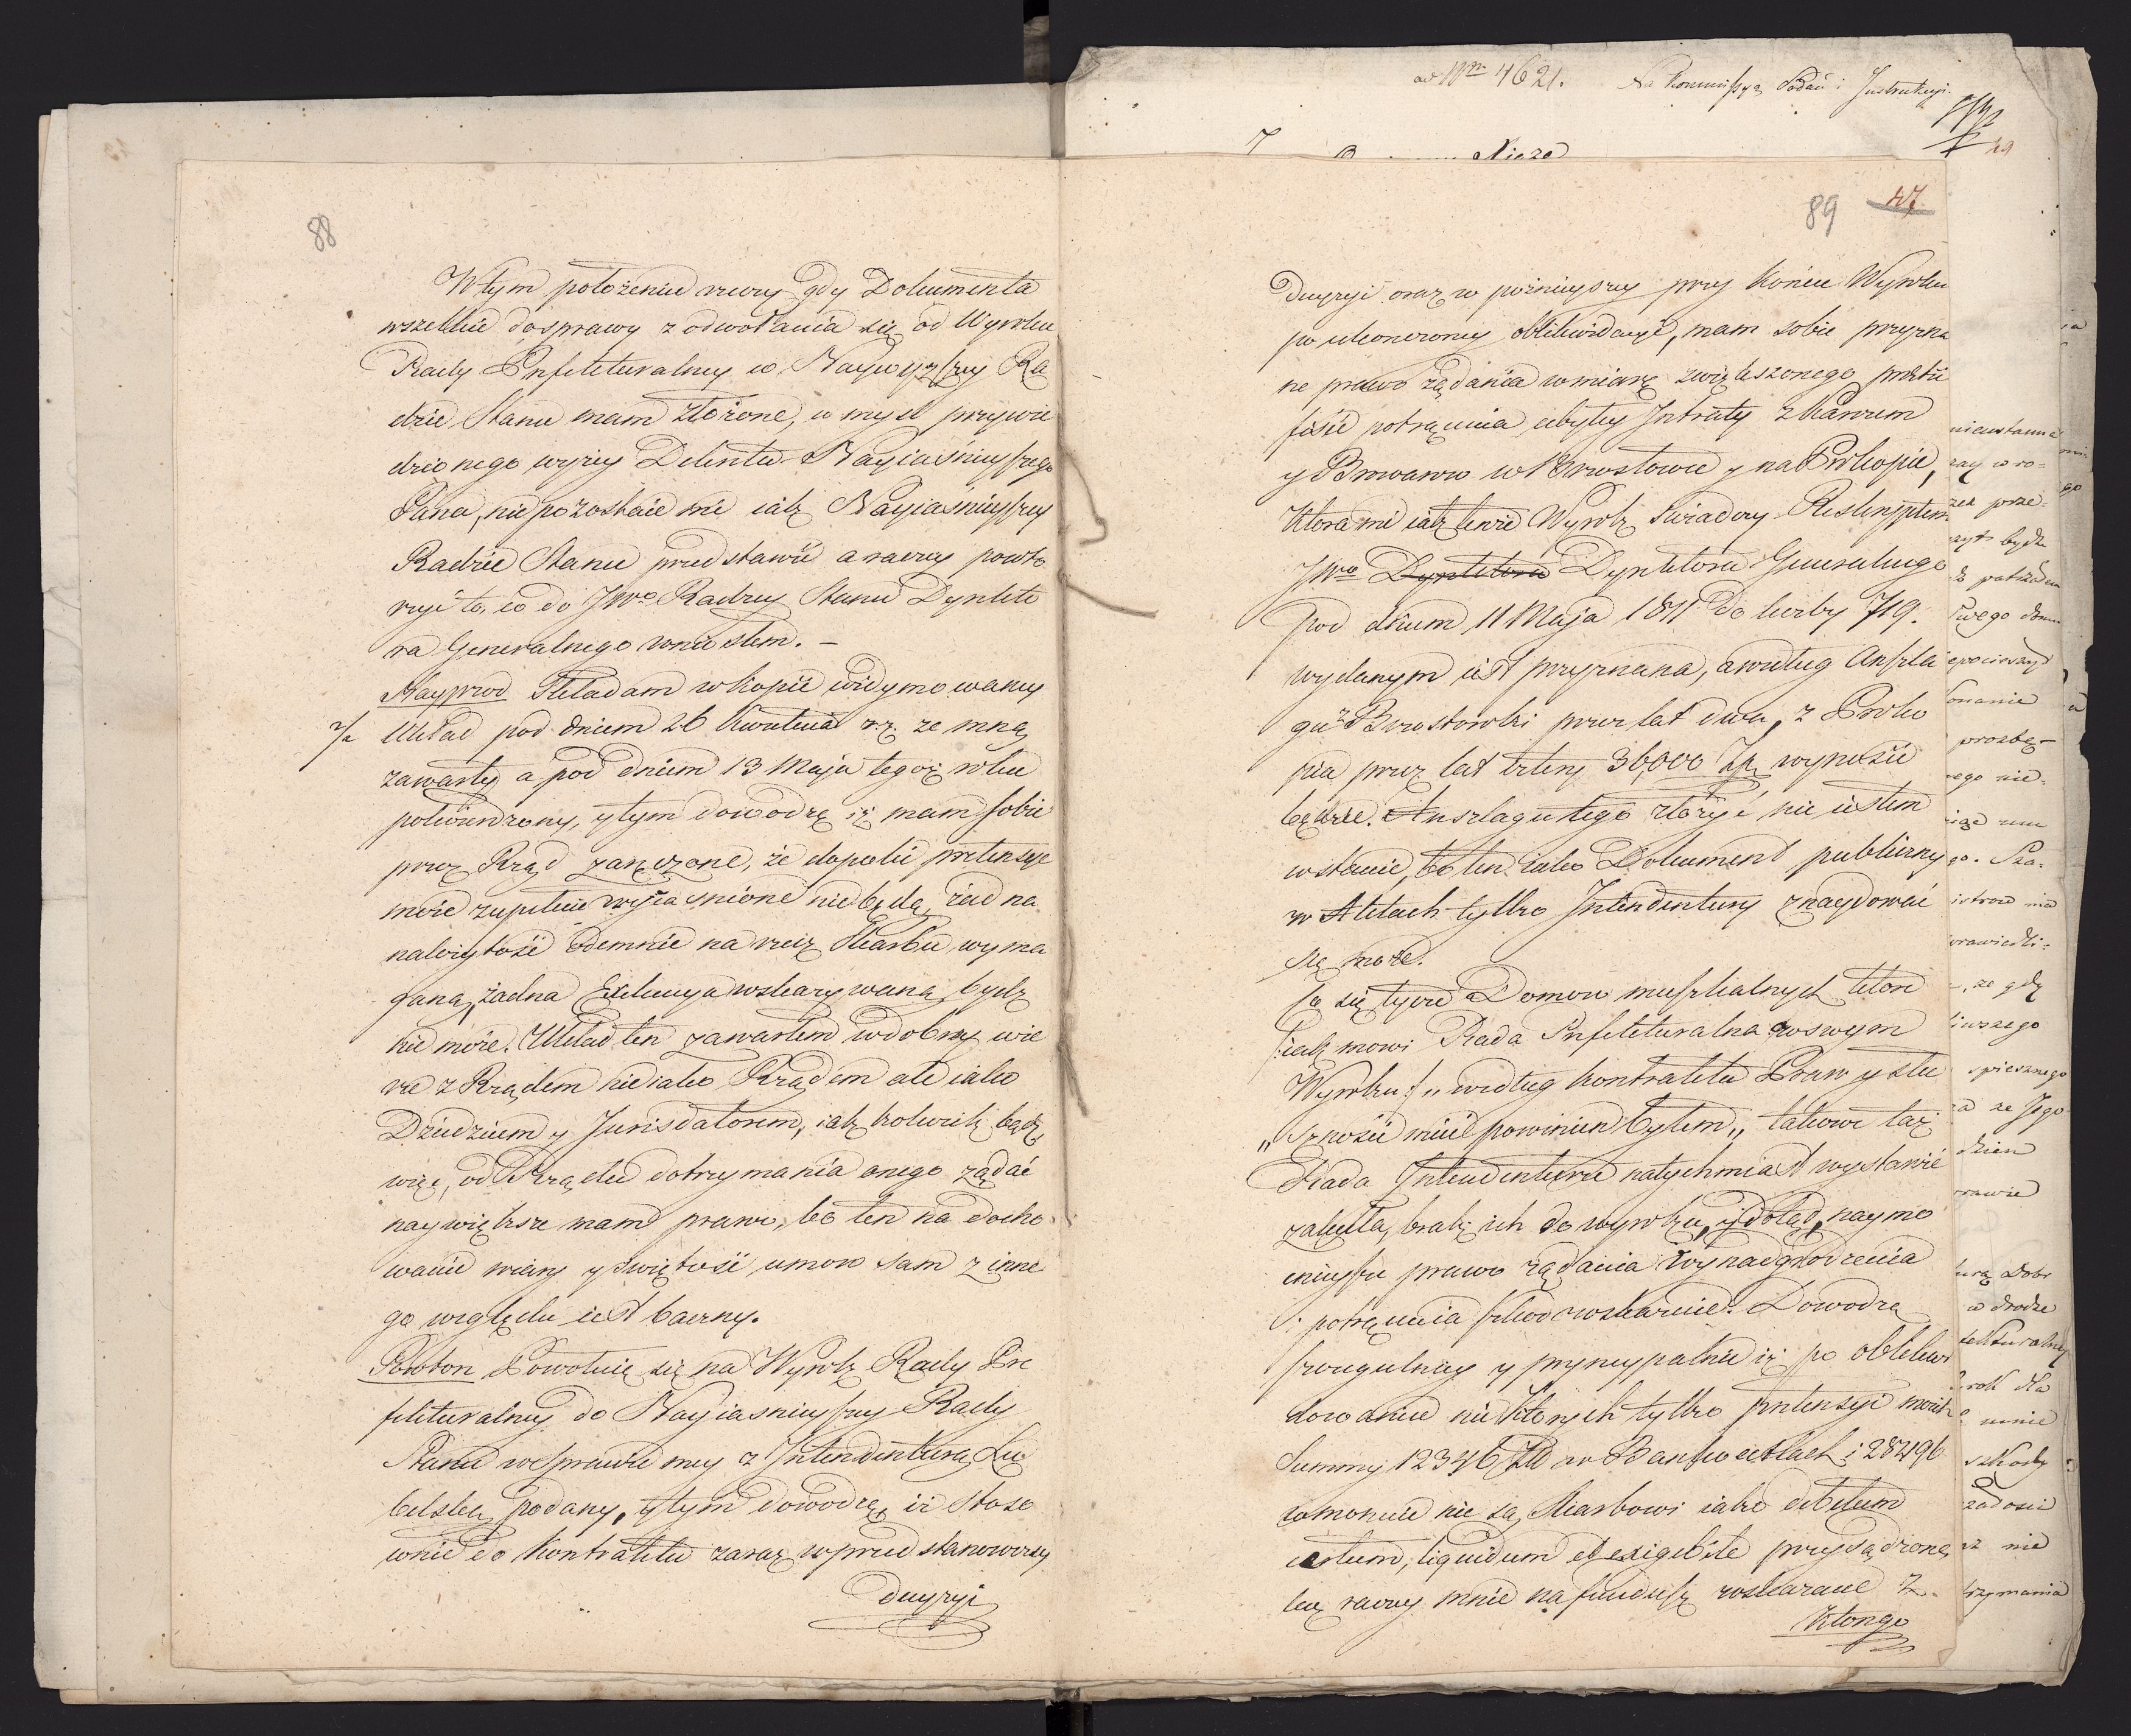 88
W tym położeniu rzeczy gdy Dokumenta
wszelkie do sprawy z odwołania się od Wyroku
Rady Prefekturalney w Naywyższey Ra
dzie Stanu mam złożone, w myśl przywie
dzionego wyżey Dekretu Nayiaśnieyszego
Pana, nie pozostaie mi iak Nayiaśnieyszey
Radzie Stanu przedstawić a raczey powto
rzyć to, co do JWo Radzcy Stanu Dyrekto
ra Generalnego wniosłem. –
Nayprzod Składam w kopii widymowaney
Układ pod dniem 26 Kwietnia r. z. ze mną
zawarty a pod dniem 13 Maja tegoż roku
potwierdzony, y tym dowodzę iż mam sobie
przez Rząd zaręczone, że dopoki pretensye
moie zupełnie wyiasnione nie będą, żad na
należytość odemnie na rzecz Skarbu wyma
gana, żadna Exekucya wskazywana bydz
nie może. Układ ten zawarłem w dobrey wie
rze z Rządem nie iako Rządem ale iako
Dziedzicem y Jurisdatorem, iak kolwiek bądz
więc, od Rządu dotrzymania onego żądać
naywiększe mam prawo, bo ten na docho
wanie wiary y świętość umow sam z inne
go względu iest baczny.
Powton Powołuię się na Wyrok Rady Pre
fekturalney do Nayiasnieyszey Rady
Stanu w sprawie mey z Intendenturą Lu
belską podany, y tym dowodzę, iż stoso
wnie do Kontraktu zaraz w przed stanowczey
decyzyi
ad Nrm 4621. Na Kommissyą Podań i Instrukcyi.
49
89 47
Decyzyi oraz w poźnieyszey przy Końcu Wyroku
po ukonczoney oblikwidacyi, mam sobie przyzna
ne prawo żądania w miarę zwiększonego
potrącenia ubytey Intraty z Karczem
y Browarow w Brzostowce y na Przkopie,
Ktora mi iak tenże Wyrok świadczy Reskryptem
JWo Dyrektora Dyrektora Generalnego
pod dniem 11 Maja 1811 do liczby 719.
wydanym iest przyznana, a według Anszla
gu z Brzostowki przez lat dwa, z Przko
pia przez lat cztery 36,000 Zł. wynosić
będzie. Anszlagu tego złożyć nie iestem
w stanie, bo ten iako Dokument publiczny
w Aktach tylko Intendentury znaydować
się może.
Co się tycze Domow muszkalnych ktore
/:iak mowi Rada Prefekturalna w swym
Wyroku:/ „według Kontraktu Praw y słu
„sznosci mieć powinien byłem„ takowe taż
Rada Intendenturze natychmiast wystawić
zaleciła, brak ich do wyroku, y dotąd, naymo
cnieysze prawo żądania wynadgrodzenia
i potrącenia szkod wskazuie. Dowodzę
szczegulniey y pryncypalnie iż po oblikwi
dowaniu niektorych tylko pretensyi moich
Summy 12346 Zł w Bankocetlach i 282196
w monecie nie są Skarbowi iako debitum
certum, liquidum et exigibile przysądzone
lecz raczey mnie na fundusz wskazane z
Ktorego